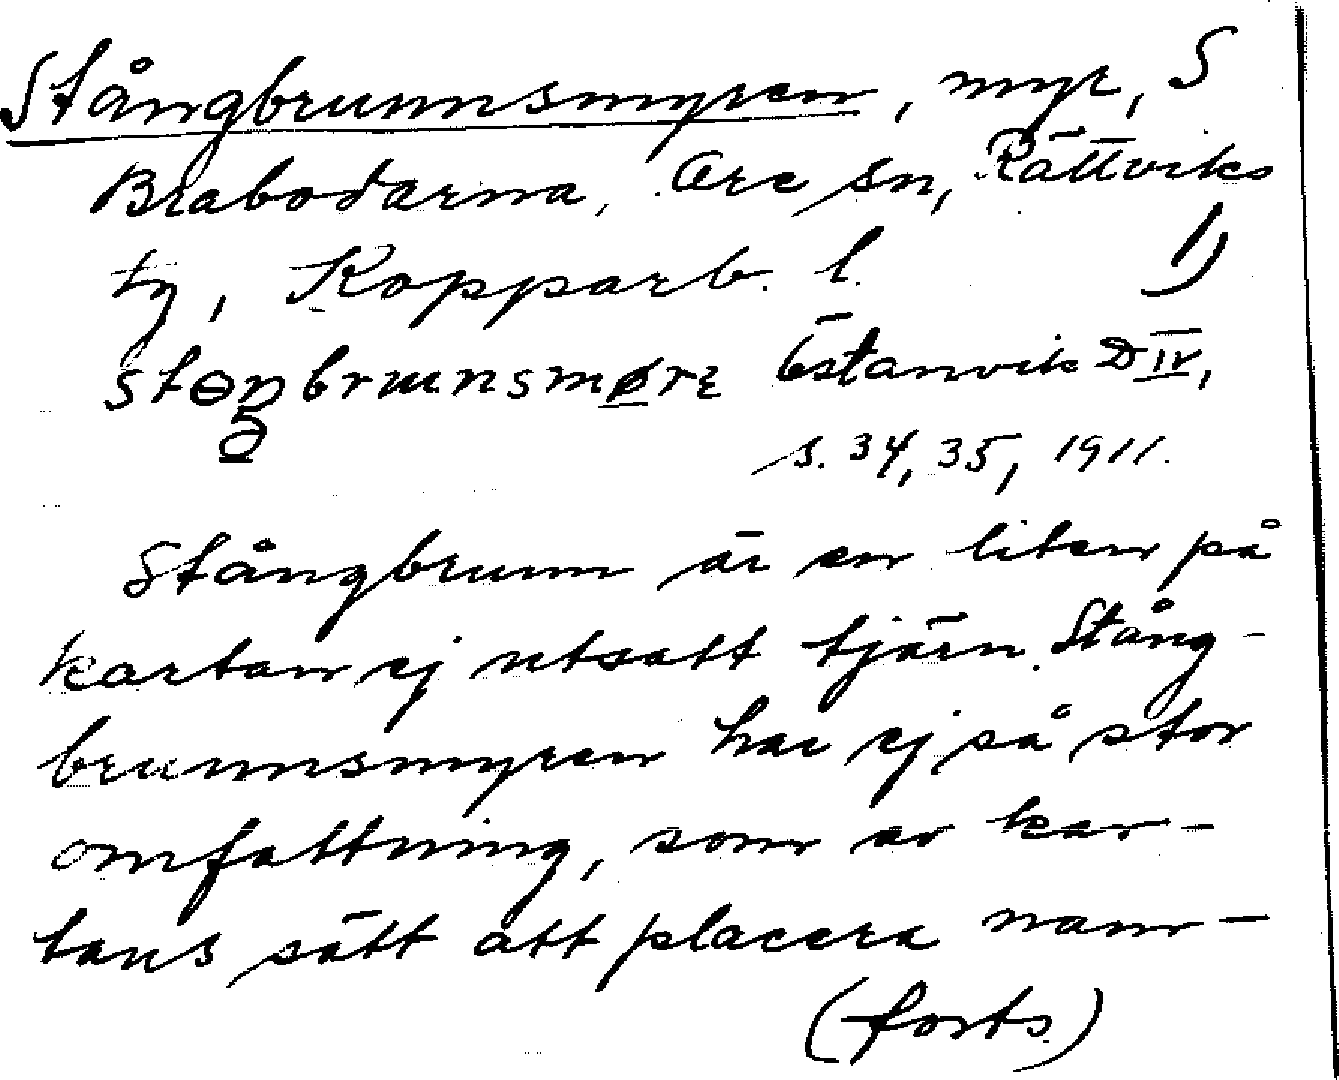 Stångbrunnsmyren, myr, S
Brabodarna, Ore sn, Rättviks
tg, Kopparb. l. 1)
Östanvik D IV,
s. 34, 35, 1911.
Stångbrunn är en liten på
kartan ej utsatt tjärn. Stång-
brunnsmyren har ej så stor
omfattning, som av kar-
tans sätt att placera nam-
(forts.)